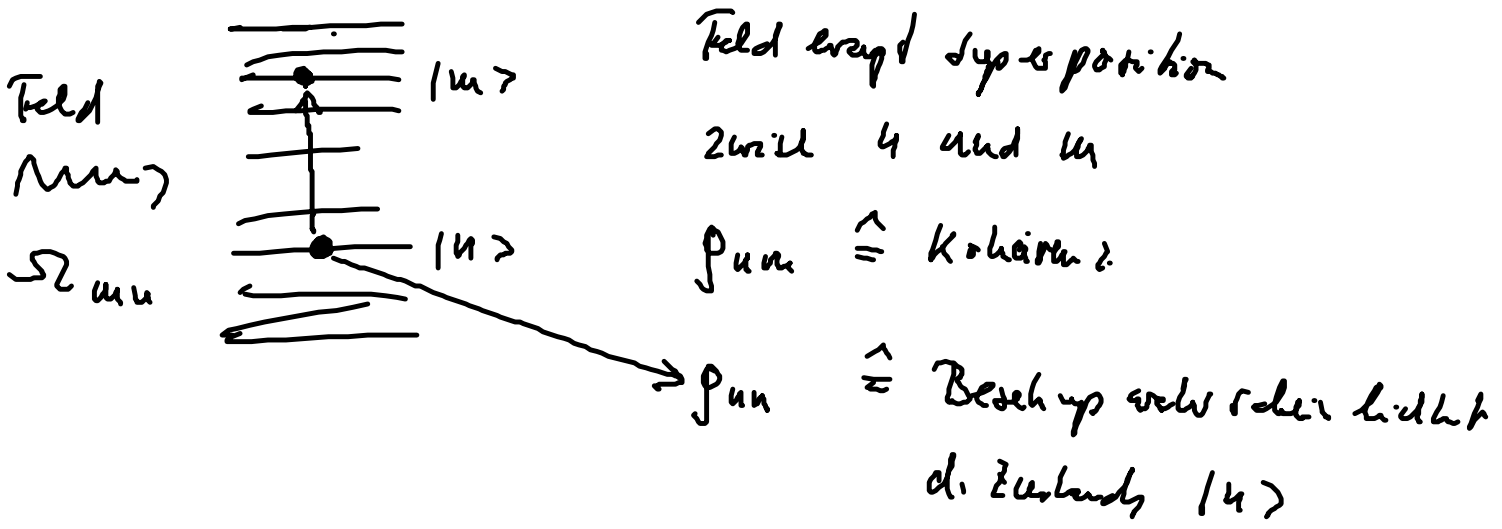 Feld erzeugt Superposition
|m>
Feld
zwisch n und m
|n>
ρnm ≙ Kohärenz
Ωmn
ρnn ≙ Besetzungswahrscheinlichkeit
d. Zustands |n>